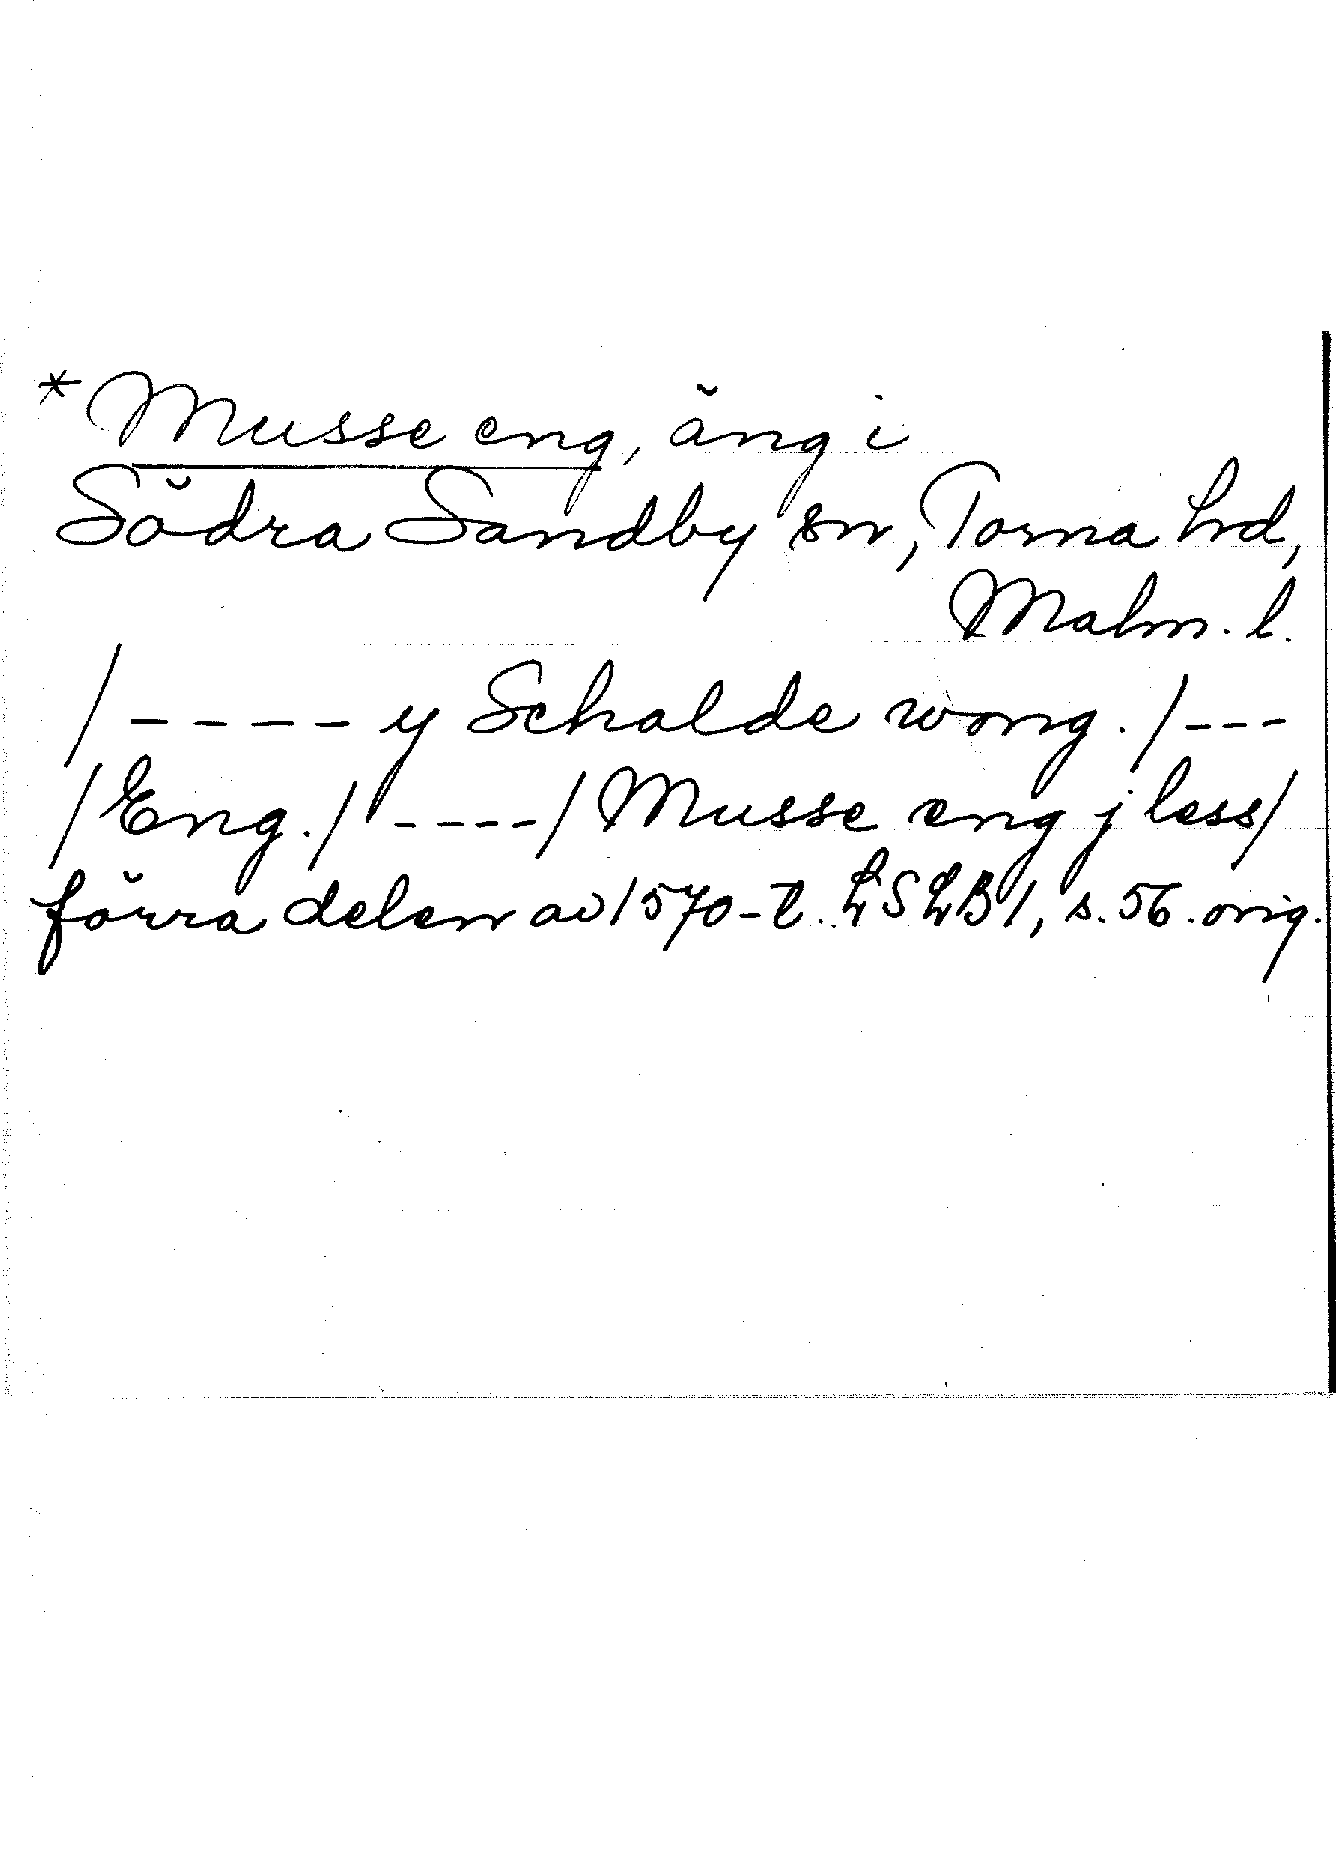 *Musse eng, äng i
Södra Sandby sn, Torna hd,
Malm. l.
/---- y Schalde wong. /---
/Eng./ ----/ Musse eng j less/
förra delen av 1570-t. LSLB 1, s. 56. orig.